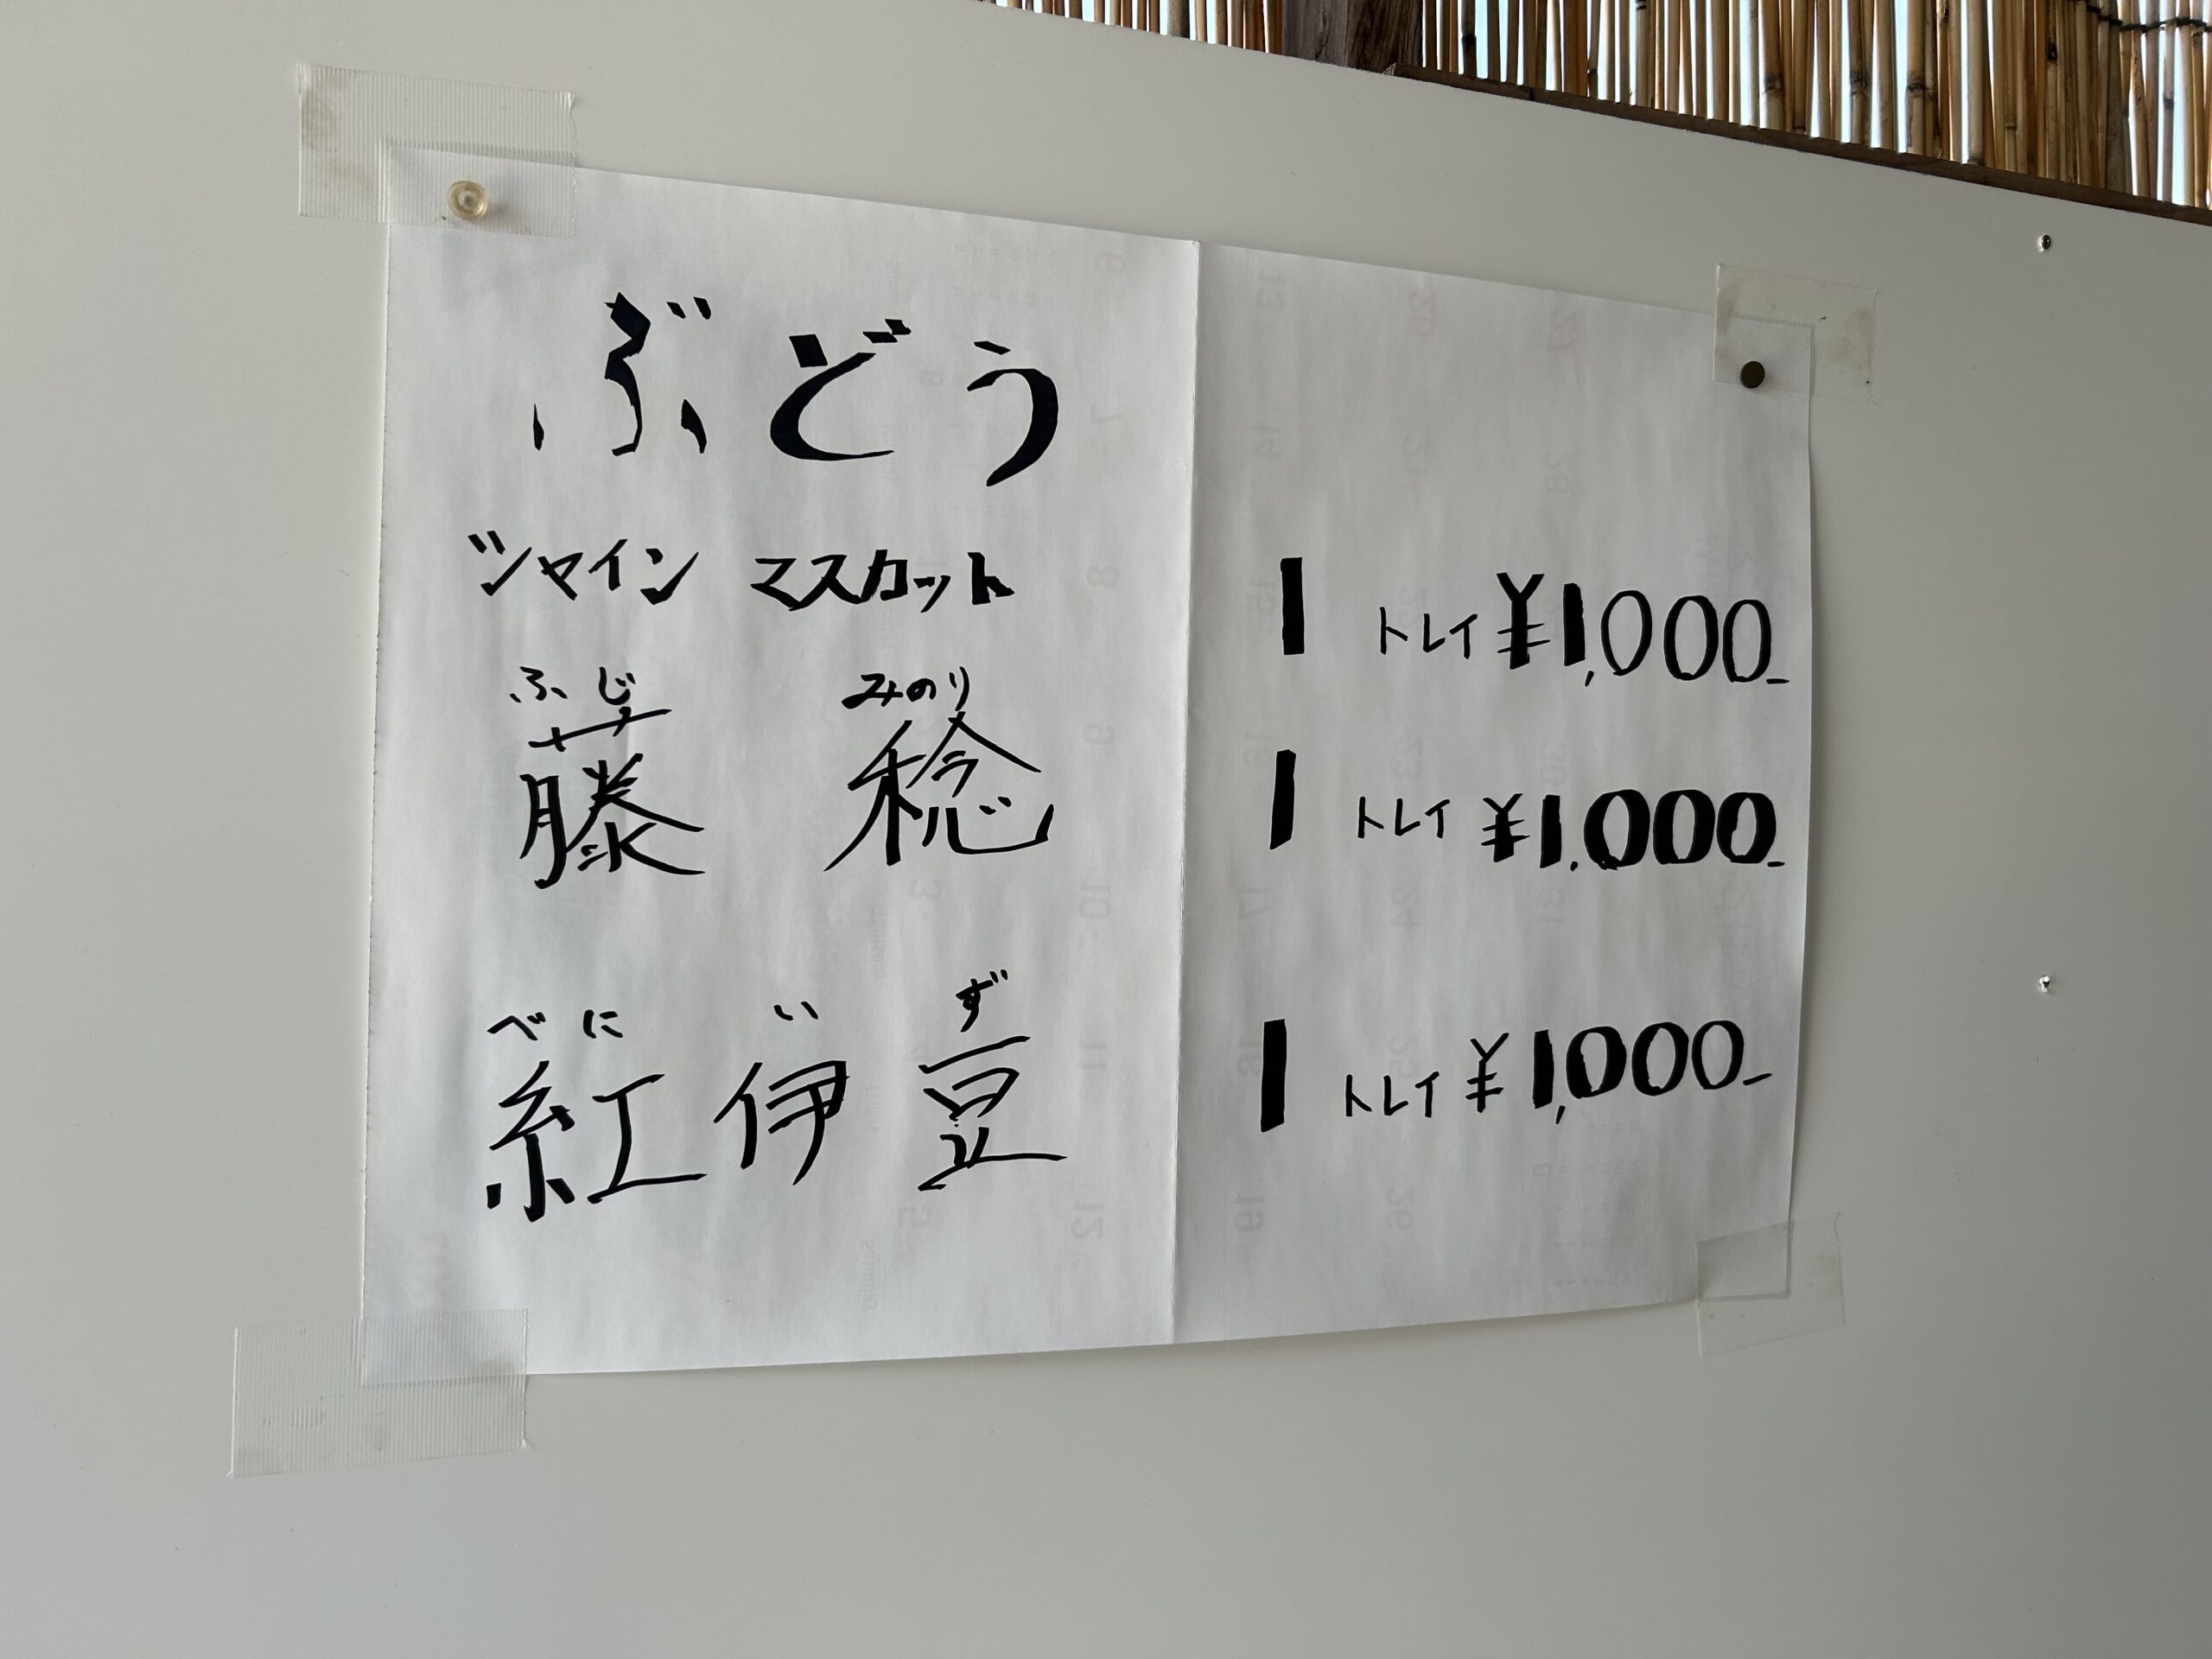 ぶどう
シャイン マスカット 1 トレイ ¥1,000-
ふじ みのり
藤 稔 1 トレイ ¥1.000-
べに い ず
紅伊豆 1 トレイ ¥1,000-